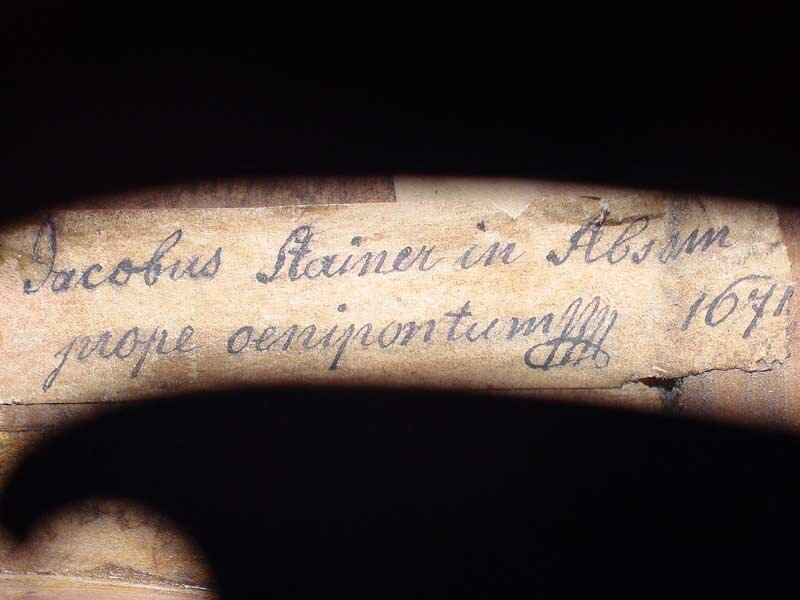 Jacobus Stainer in Absam
prope oenipontum 1671